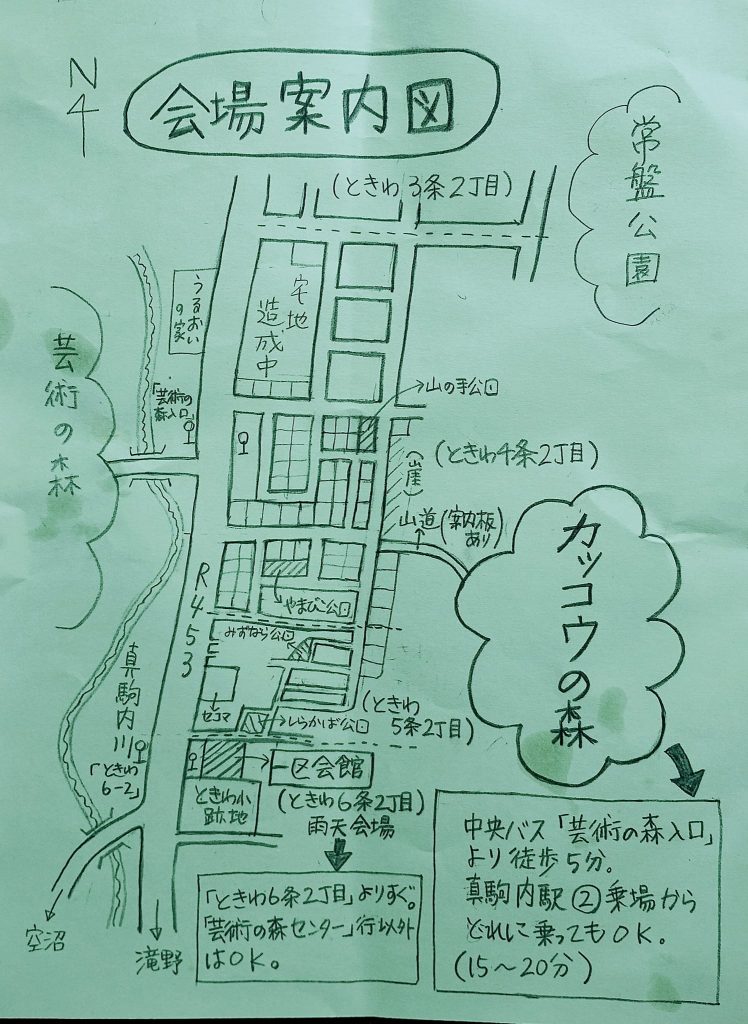 N
会場案内図
常盤公園
(ときわ3条2丁目)
うるおい
の家
宅地
造成中
芸術の森
「芸術の
森入口」
→山の手公园
(ときわ4条2丁目)
(山崖)
山道(案内板
あり)
カッコウの森
R453
やまびこ公园
みずなら公园
セコマ
しらかば公园
(ときわ
5条2丁目)
真駒内川
「ときわ
6-2」
区会館
ときわ小
跡地
(ときわ6条2丁目)
雨天会場
「ときわ6条2丁目」よりすぐ。
「芸術の森センター」行以外
はOK。
中央バス「芸術の森入口」
より徒歩5分。
真駒内駅②乗場から
どれに乗ってもOK。
(15〜20分)
空沼
滝野